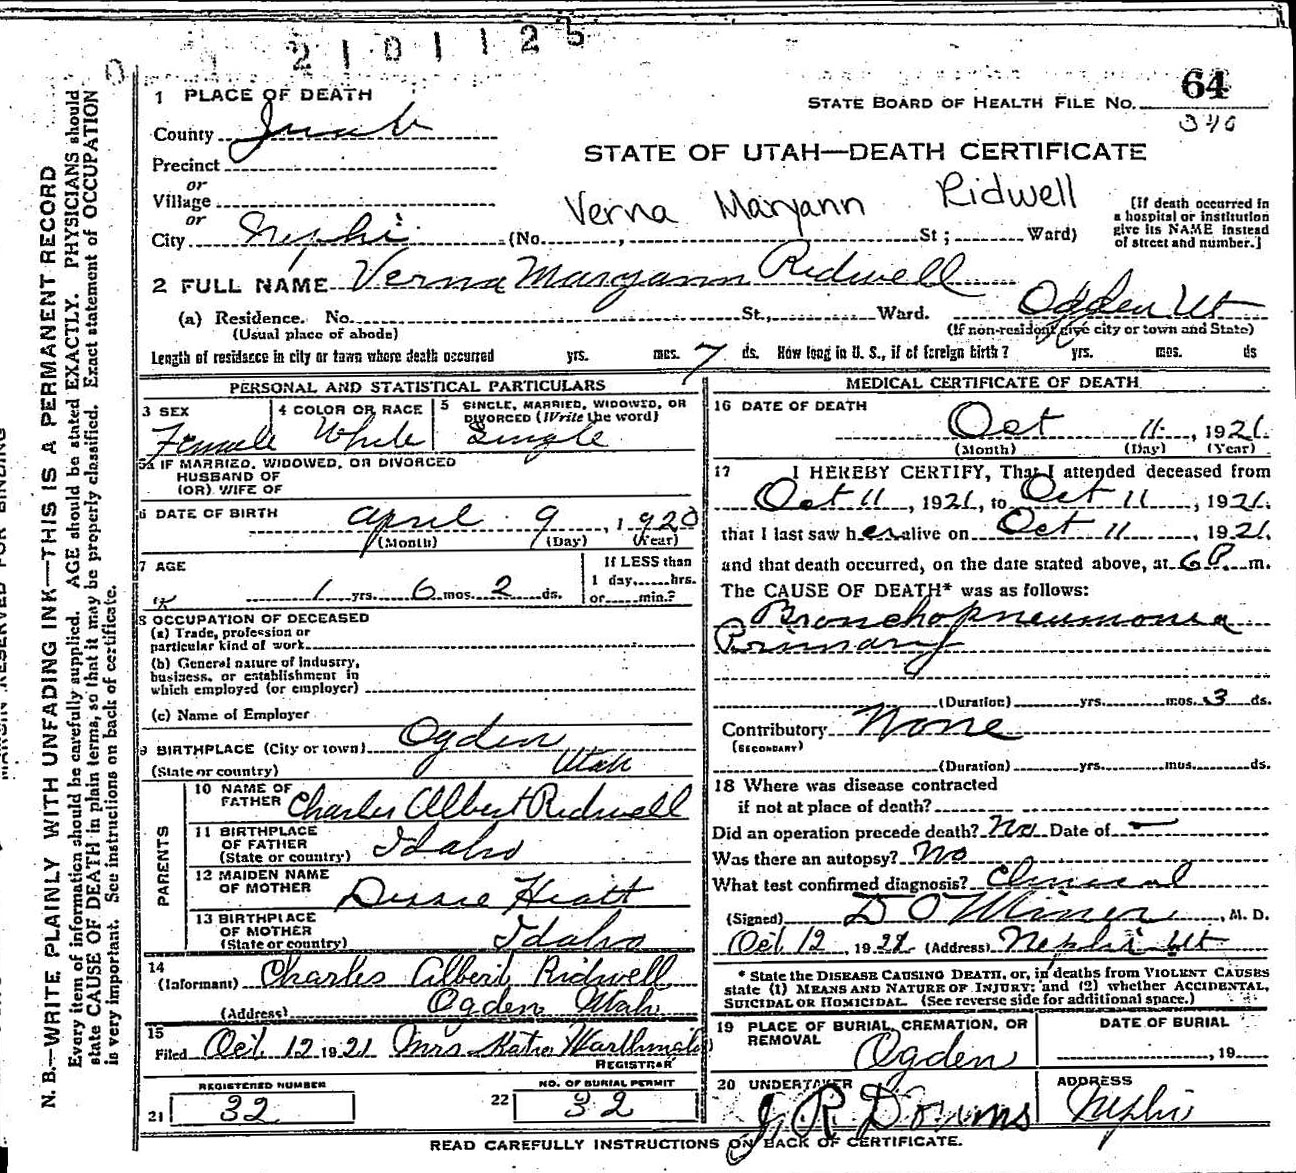 2101125
64
STATE BOARD OF HEALTH FILE NO.
340
1 PLACE OF DEATH
County Juab
STATE OF UTAH—DEATH CERTIFICATE
Precinct
or
Village
or
Verna Maryann Ridwell
[If death occurred in a hospital or institution give its NAME instead of street and number.]
City Nephi (No. , St ; Ward)
2 FULL NAME Verna Maryann Ridwell
(a) Residence. No. St., Ward. Ogden Ut
(Usual place of abode) (If non-resident give city or town and State)
Length of residence in city or town where death occurred yrs. mos. 7 ds. How long in U. S., if of foreign birth? yrs. mos. ds
PERSONAL AND STATISTICAL PARTICULARS
3 SEX 4 COLOR OR RACE 5 SINGLE, MARRIED, WIDOWED, OR DIVORCED (Write the word)
Female White Single
5a IF MARRIED, WIDOWED, OR DIVORCED
HUSBAND OF
(OR) WIFE OF
6 DATE OF BIRTH April 9, 1920
(Month) (Day) (Year)
7 AGE If LESS than
1 yrs. 6 mos. 2 ds. 1 day, hrs.
or min.?
8 OCCUPATION OF DECEASED
(a) Trade, profession or
particular kind of work
(b) General nature of industry,
business, or establishment in
which employed (or employer)
(c) Name of Employer
9 BIRTHPLACE (City or town) Ogden
(State or country) Utah
PARENTS
10 NAME OF FATHER Charles Albert Ridwell
11 BIRTHPLACE OF FATHER (State or country) Idaho
12 MAIDEN NAME OF MOTHER Dessie Hiatt
13 BIRTHPLACE OF MOTHER (State or country) Idaho
14 (Informant) Charles Albert Ridwell
(Address) Ogden Utah
15 Filed Oct 12 1921 Mrs Katie
REGISTRAR
REGISTERED NUMBER NO. OF BURIAL PERMIT
21 32 22 32
MEDICAL CERTIFICATE OF DEATH
16 DATE OF DEATH
Oct 11, 1921.
(Month) (Day) (Year)
17 I HEREBY CERTIFY, That I attended deceased from
Oct 11, 1921, to Oct 11, 1921.
that I last saw her alive on Oct 11, 1921.
and that death occurred, on the date stated above, at 6 P. m.
The CAUSE OF DEATH* was as follows:
Bronchopneumonia
Primary
(Duration) yrs. mos. 3 ds.
Contributory None
(SECONDARY)
(Duration) yrs. mos. ds.
18 Where was disease contracted
if not at place of death?
Did an operation precede death? No Date of —
Was there an autopsy? No
What test confirmed diagnosis? Clinical
(Signed) D O Miner, M. D.
Oct 12 1921 (Address) Nephi Ut
* State the DISEASE CAUSING DEATH, or, in deaths from VIOLENT CAUSES
state (1) MEANS AND NATURE OF INJURY; and (2) whether ACCIDENTAL,
SUICIDAL OR HOMICIDAL. (See reverse side for additional space.)
19 PLACE OF BURIAL, CREMATION, OR REMOVAL DATE OF BURIAL
Ogden , 19
20 UNDERTAKER ADDRESS
J R Downs Nephi
READ CAREFULLY INSTRUCTIONS ON BACK OF CERTIFICATE.
MARGIN RESERVED FOR BINDING
N. B.—WRITE PLAINLY WITH UNFADING INK—THIS IS A PERMANENT RECORD
Every item of information should be carefully supplied. AGE should be stated EXACTLY. PHYSICIANS should
state CAUSE OF DEATH in plain terms, so that it may be properly classified. Exact statement of OCCUPATION
is very important. See instructions on back of certificate.